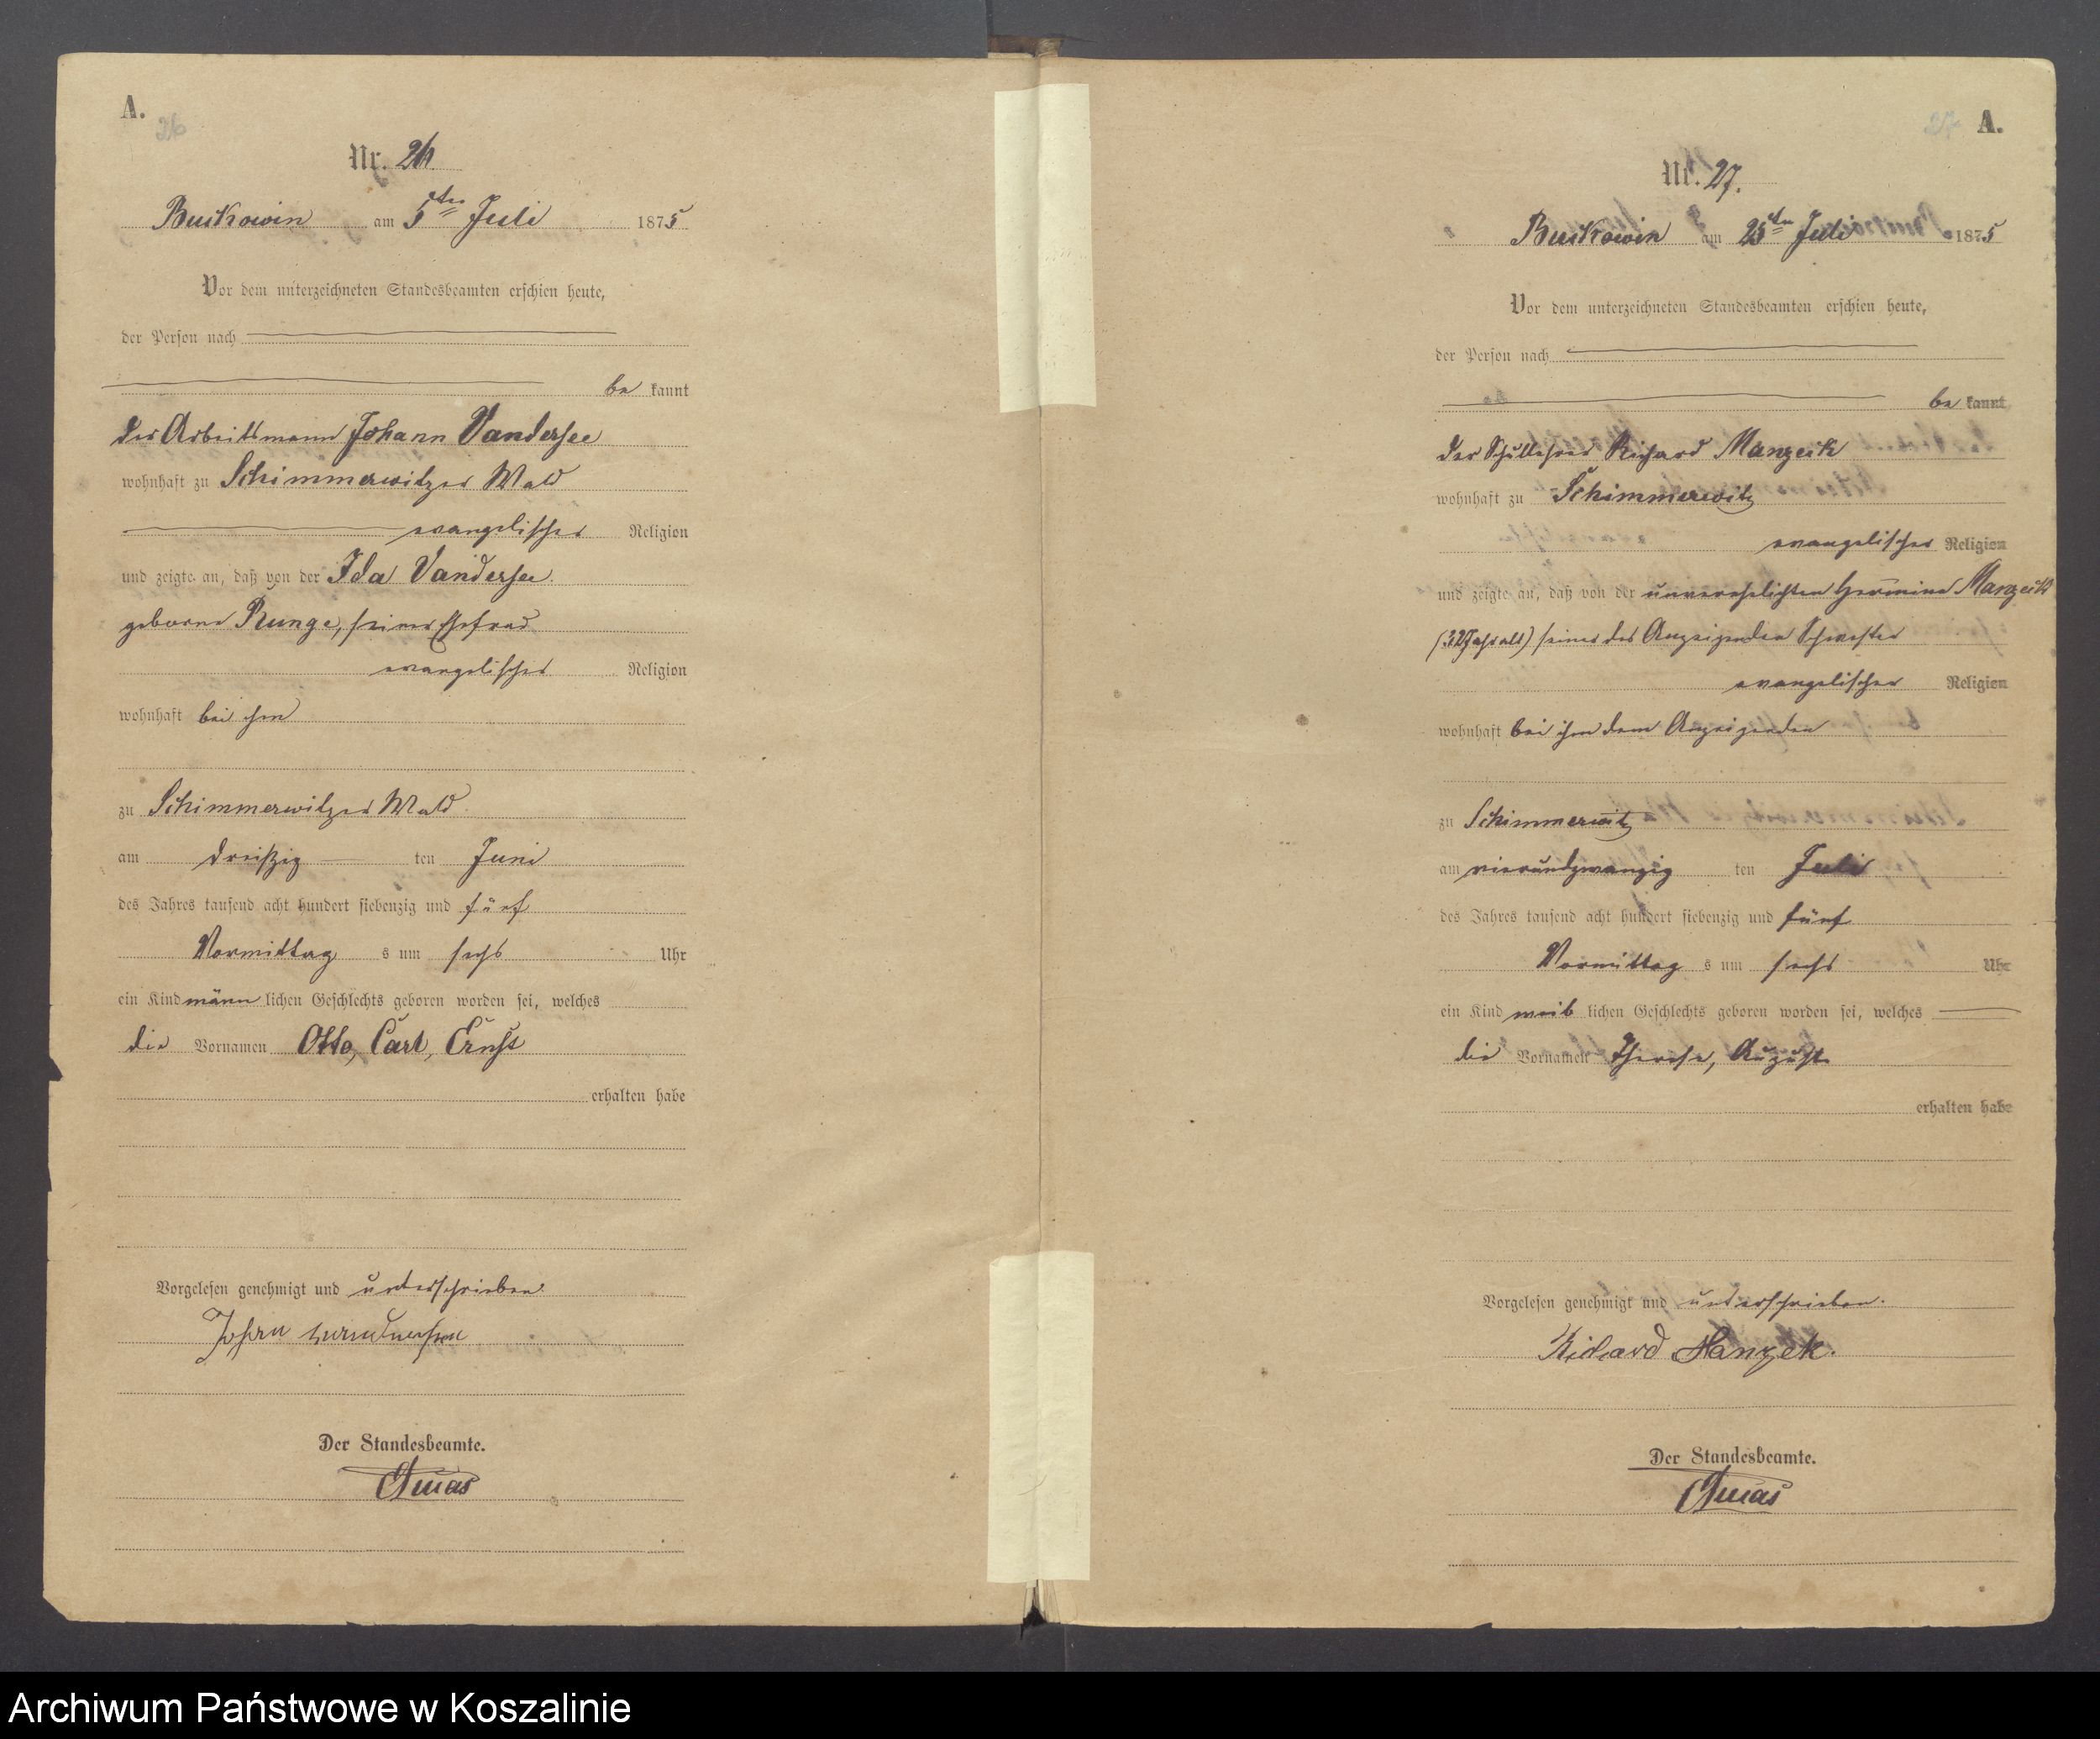 A.
26
Nr. 26.
Buckowin am 5ten Juli 1875
Vor dem unterzeichneten Standesbeamten erschien heute,
der Person nach
be kannt
der Arbeitsmann Johann Vandersee
wohnhaft zu Schimmerwitzer Wald
evangelischer Religion
und zeigte an, daß von der Ida Vandersee
geborne Runge, seiner Ehefrau
evangelischer Religion
wohnhaft bei ihm
zu Schimmerwitzer Wald
am dreißig ten Juni
des Jahres tausend acht hundert siebenzig und fünf
Vormittag s um sechs Uhr
ein Kind männ lichen Geschlechts geboren worden sei, welches
die Vornamen Otto, Carl, Ernst
erhalten habe
Vorgelesen genehmigt und unterschrieben.
Johan
Der Standesbeamte.
27 A.
Nr. 27.
Buckowin am 25ten Juli 1875
Vor dem unterzeichneten Standesbeamten erschien heute,
der Person nach
be kannt
der Schullehrer Richard Manzeck
wohnhaft zu Schimmerwitz
evangelischer Religion
und zeigte an, daß von der unverehelichten Hermine Manzeck
(22 Jahr alt) seiner des Anzeigenden Schwester
evangelischer Religion
wohnhaft bei ihm dem Anzeigenden
zu Schimmerwitz
am vierundzwanzig ten Juli
des Jahres tausend acht hundert siebenzig und fünf
Vormittag s um sechs Uhr
ein Kind weib lichen Geschlechts geboren worden sei, welches
die Vornamen Therese, Auguste
erhalten habe
Vorgelesen genehmigt und unterschrieben.
Richard Manzek.
Der Standesbeamte.
Archiwum Państwowe w Koszalinie